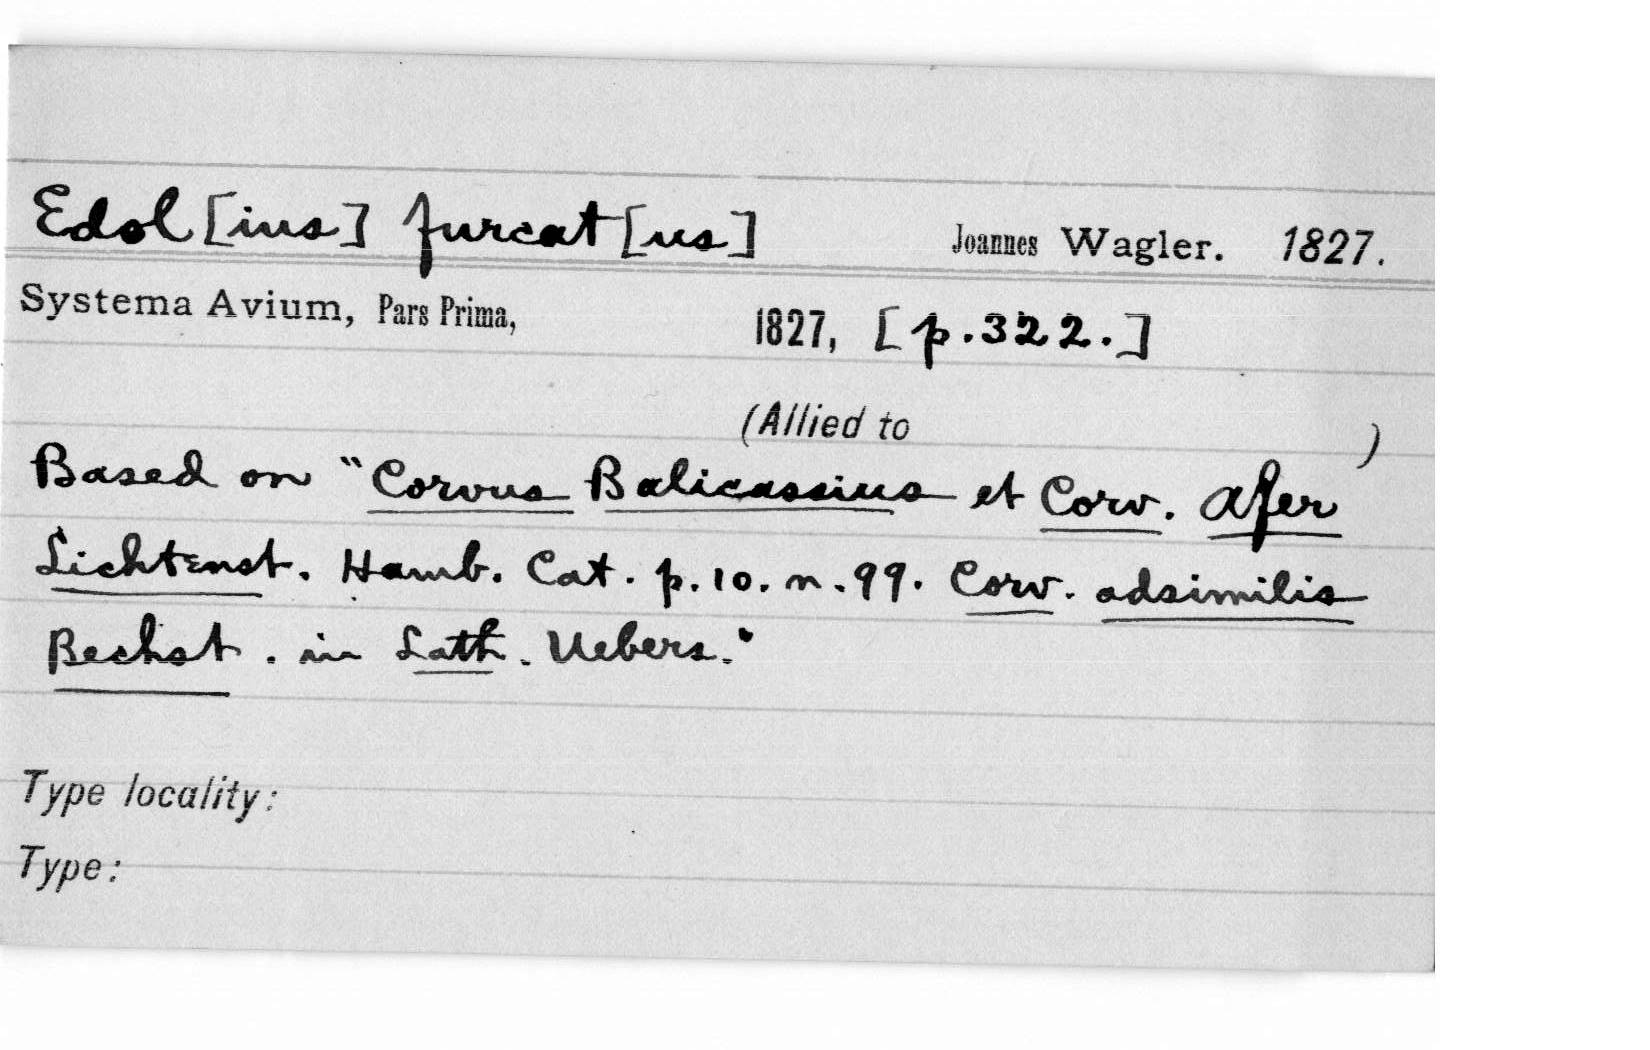 Edol[ius] furcat[us] Joannes Wagler. 1827.
Systema Avium, Pars Prima, 1827, [p.322.]
(Allied to )
Based on "Corvus Balicassius et Corv. Afer
Lichtenst. Hamb. Cat. p.10. n.99. Corv. adsimilis
Bechst. in Lath. Uebers."
Type locality:
Type: